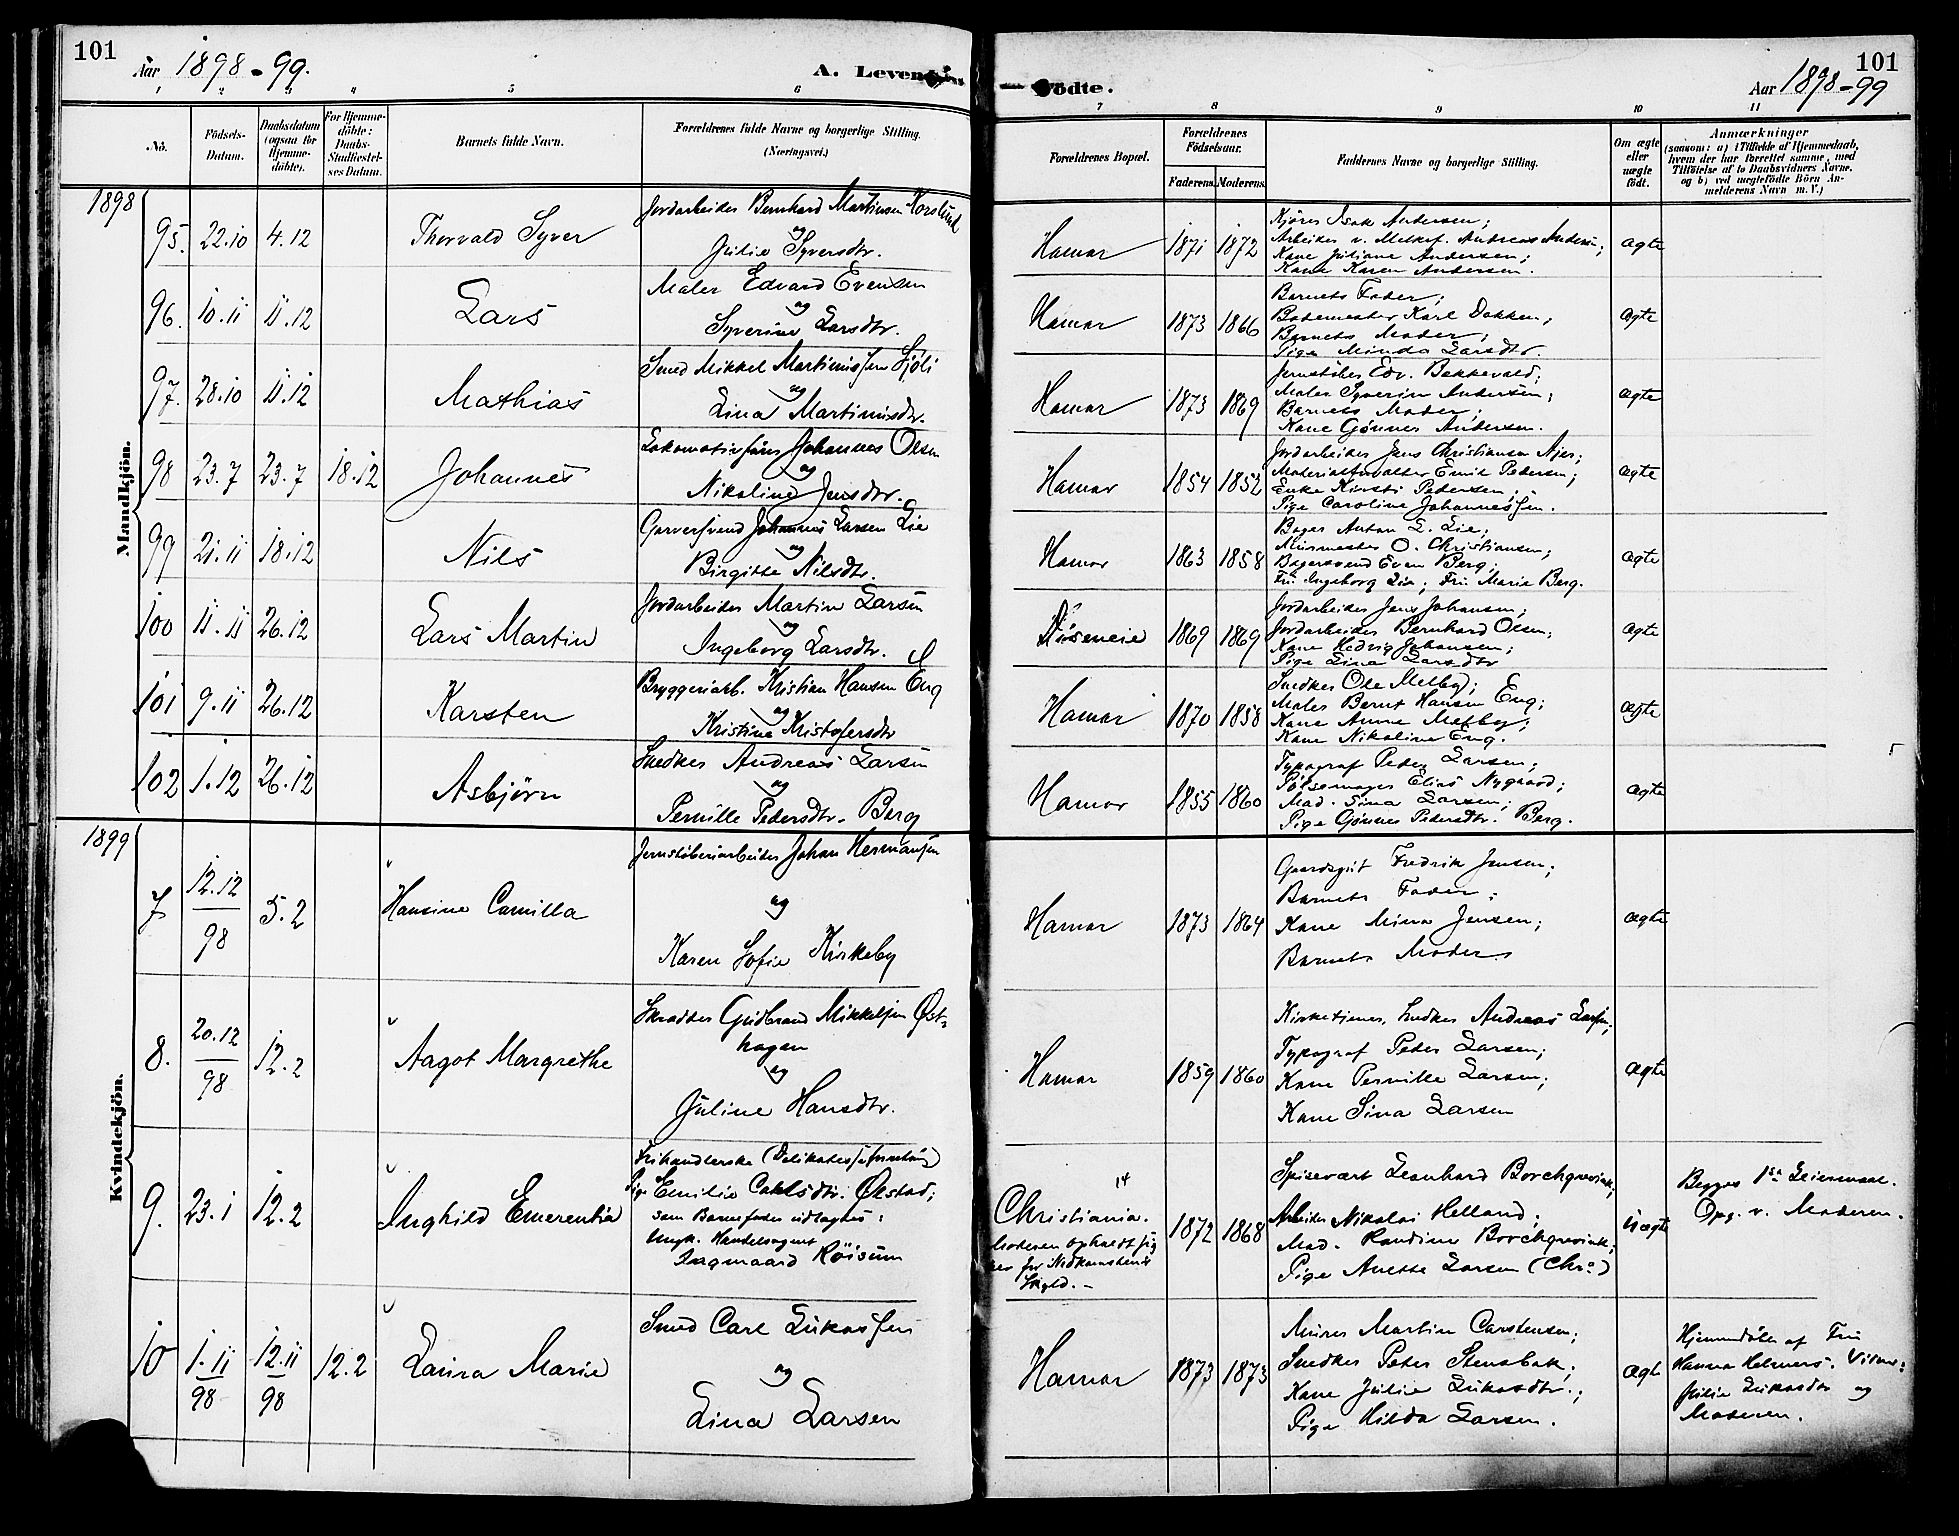 101
Aar 1898-99.
A. Levende
Födte.
Aar 1898-99
101
1 2 3 4 5 6 7 8 9 10 11
No.
Födsels-Datum.
Daabsdatum (ogsaa for Hjemmedöbte).
For Hjemmedöbte: Daabs-Stadfæstelses Datum.
Barnets fulde Navn.
Forældrenes fulde Navne og borgerlige Stilling. (Næringsvei.)
Forældrenes Bopæl.
Forældrenes Födselsaar.
Faderens. Moderens.
Faddernes Navne og borgerlige Stilling.
Om ægte eller uægte födt.
Anmærkninger
(saasom: a) i Tilfælde af Hjemmedaab, hvem der har forrettet samme, med Tilföielse af to Daabsvidners Navne, og b) ved uægtefödte Börn Anmelderens Navn m. V.)
Mandkjön.
1898
95. 22.10 4.12 Thorvald Syver
Jordarbeider Bernhard Martinsen Korslund
og
Julie Syversdtr.
Hamar 1871 1872
Kjører Isak Andersen;
Arbeider v. Melkef. Andreas Andersen;
Kone Juliane Andersen;
Kone Karen Andersen.
ægte
96. 10.11 11.12 Lars
Maler Edvard Evensen
og
Syverine Larsdtr.
Hamar 1873 1866
Barnets Fader;
Bademester Karl Dokken;
Barnets Moder;
Pige Minda Larsdtr.
ægte
97. 28.10 11.12 Mathias
Smed Mikkel Martiniussen Sjöli
og
Lina Martinusdtr.
Hamar 1873 1869
Jernstöber Edv. Bekkevold;
Maler Syverin Andersen;
Barnets Moder;
Kone Gønner Andersen.
ægte
98 23.7 23.7 18.12 Johannes
Lokomotivfører Johannes Olsen
og
Nikoline Jensdtr.
Hamar 1854 1852
Jordarbeider Jens Christiansen Njør;
Materialforvalter Emil Pedersen;
Enke Kirsti Pedersen;
Pige Caroline Johannessen.
ægte
99 21.11 18.12 Nils
Garversvend Johannes Larsen Lie
og
Birgitte Nilsdtr.
Hamar 1863 1858
Bager Anton L. Lie;
Murmester O. Christiansen;
Bagersvend Even Berg;
Fru Ingeborg Lie; Fru Maria Berg.
ægte
100 11.11 26.12 Lars Martin
Jordarbeider Martin Larsen
og
Ingeborg Larsdtr.
1869 1869
Jordarbeider Jens Johansen;
Jordarbeider Bernhard Olsen;
Kone Hedvig Johansen;
Pige Lina Larsdtr
ægte
101 9.11 26.12 Karsten
Bryggeriarb. Kristian Hansen Eng
og
Kristine Kristofersdtr
Hamar 1870 1858
Snedker Ole Melby;
Maler Bernt Hansen Eng;
Kone Anne Melby;
Kone Nikoline Eng.
ægte
102 1.12 26.12 Asbjørn
Snedker Andreas Larsen
og
Pernille Pedersdtr. Berg
Hamar 1855 1860
Typograf Peder Larsen;
Pølsemager Elias Nygaard;
Mad. Sina Larsen;
Pige Gønner Pedersdtr. Berg.
ægte
Kvindekjön.
1899
7 12.12 98 5.2 Hansine Camilla
Jernstøberiarbeider Johan Hermansen
og
Karen Sofie Kirkeby
Hamar 1873 1864
Gaardsgut Fredrik Jensen;
Barnets Fader;
Kone Mina Jensen;
Barnets Moder
ægte
8. 20.12 98 12.2 Aagot Margrethe
Skrædder Gudbrand Mikkelsen Øst-
hagen
og
Juline Hansdtr.
Hamar 1859 1860
Kirketjener, Snedker Andreas Larsen;
Typograf Peder Larsen;
Kone Pernille Larsen;
Kone Sina Larsen
ægte
9. 23.1 12.2 Inghild Emerentia
Frihandlerske (Delikatesseforretning)
Pige Emilie Carlsdtr. Økstad;
som Barnefader udlagdes:
Ungk. Handelsagent
Dagmaard Röisum
14
Christiania.
Moderen opholdt sig
her for Nedkomstens
Skyld.-
1872 1868
Spisevært Leonhard Borchgrevink;
Arbeider Nikolai Helland;
Mad. Randine Borchgrevink;
Pige Anette Larsen (Chr.a)
uægte
Begges 1ste Leiermaal.
Opg. v. Moderen.
10 1.11 98 12.11 98 12.2 Laura Marie
Smed Carl Lukassen
og
Lina Larsen
Hamar 1873 1873
Murer Martin Carstensen;
Snedker Peter Stensbak;
Kone Julie Lukasdtr.;
Pige Hilda Larsen.
ægte
Hjemmdöbt af Fru
Hanna Helmers. Vidner:
Julie Lukasdtr og
Moderen.